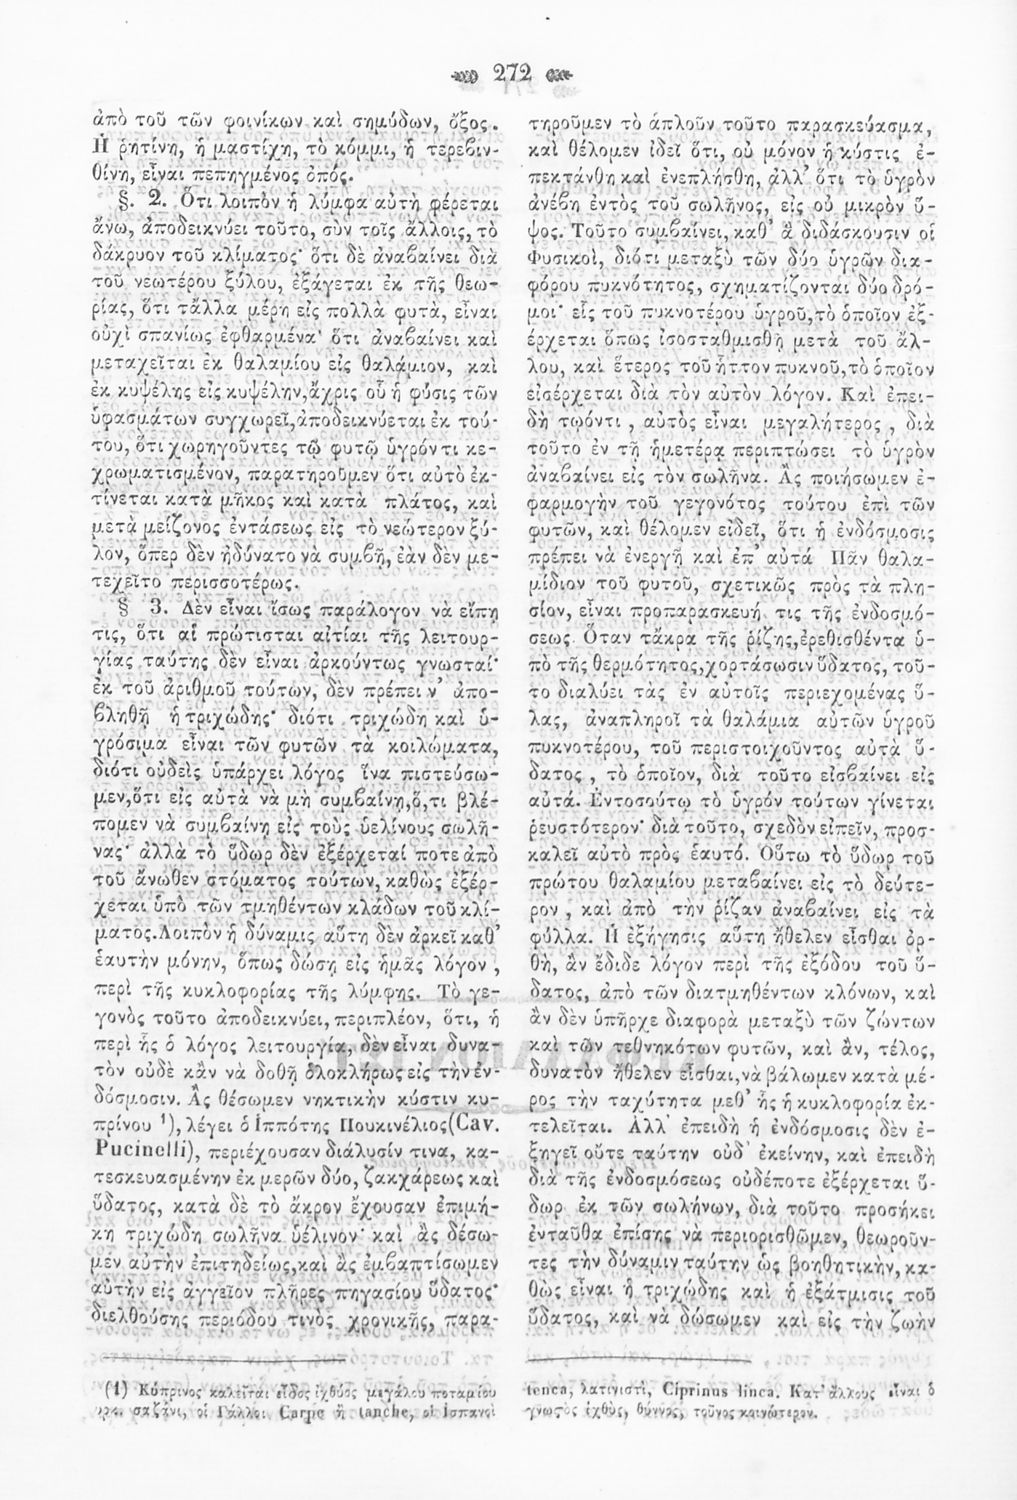 272
ἀπὸ τοῦ τῶν φοινίκων καὶ σημύδων, ὄξος.
Ἡ ῥητίνη, ἡ μαστίχη, τὸ κόμμι, ἡ τερεβιν-
θίνη, εἶναι πεπηγμένος ὀπός.
§. 2. Ὅτι λοιπὸν ἡ λύμφα αὐτὴ φέρεται
ἄνω, ἀποδεικνύει τοῦτο, σὺν τοῖς ἄλλοις, τὸ
δάκρυον τοῦ κλίματος· ὅτι δὲ ἀναβαίνει διὰ
τοῦ νεωτέρου ξύλου, ἐξάγεται ἐκ τῆς θεω-
ρίας, ὅτι τἄλλα μέρη εἰς πολλὰ φυτὰ, εἶναι
οὐχὶ σπανίως ἐφθαρμένα· ὅτι ἀναβαίνει καὶ
μεταχεῖται ἐκ θαλαμίου εἰς θαλάμιον, καὶ
ἐκ κυψέλης εἰς κυψέλην,ἄχρις οὗ ἡ φύσις τῶν
ὑφασμάτων συγχωρεῖ,ἀποδεικνύεται ἐκ τού-
του, ὅτι χωρηγοῦντες τῷ φυτῷ ὑγρόν τι κε-
χρωματισμένον, παρατηροῦμεν ὅτι αὐτὸ ἐκ-
τίνεται κατὰ μῆκος καὶ κατὰ πλάτος, καὶ
μετὰ μείζονος ἐντάσεως εἰς τὸ νεώτερον ξύ-
λον, ὅπερ δὲν ἠδύνατο νὰ συμβῇ, ἐὰν δὲν με-
τεχεῖτο περισσοτέρως.
§ 3. Δὲν εἶναι ἴσως παράλογον νὰ εἴπῃ
τις, ὅτι αἱ πρώτισται αἰτίαι τῆς λειτουρ-
γίας ταύτης δὲν εἶναι ἀρκούντως γνωσταί·
ἐκ τοῦ ἀριθμοῦ τούτων, δὲν πρέπει ν' ἀπο-
βληθῇ ἡ τριχώδης· διότι τριχώδη καὶ ὑ-
γρόσιμα εἶναι τῶν φυτῶν τὰ κοιλώματα,
διότι οὐδεὶς ὑπάρχει λόγος ἵνα πιστεύσω-
μεν,ὅτι εἰς αὐτὰ νὰ μὴ συμβαίνῃ,ὅ,τι βλέ-
πομεν νὰ συμβαίνῃ εἰς τοὺς ὑελίνους σωλῆ-
νας· ἀλλὰ τὸ ὕδωρ δὲν ἐξέρχεταί ποτε ἀπὸ
τοῦ ἄνωθεν στόματος τούτων, καθὼς ἐξέρ-
χεται ὑπὸ τῶν τμηθέντων κλάδων τοῦ κλί-
ματος.Λοιπὸν ἡ δύναμις αὕτη δὲν ἀρκεῖ καθ'
ἑαυτὴν μόνην, ὅπως δώσῃ εἰς ἡμᾶς λόγον,
περὶ τῆς κυκλοφορίας τῆς λύμφης. Τὸ γε-
γονὸς τοῦτο ἀποδεικνύει, περιπλέον, ὅτι, ἡ
περὶ ἧς ὁ λόγος λειτουργία, δὲν εἶναι δυνα-
τὸν οὐδὲ κἂν νὰ δοθῇ ὁλοκλήρως εἰς τὴν ἐν-
δόσμοσιν. Ἂς θέσωμεν νηκτικὴν κύστιν κυ-
πρίνου ¹), λέγει ὁ Ἱππότης Πουκινέλιος(Cav.
Pucinelli), περιέχουσαν διάλυσίν τινα, κα-
τεσκευασμένην ἐκ μερῶν δύο, ζακχάρεως καὶ
ὕδατος, κατὰ δὲ τὸ ἄκρον ἔχουσαν ἐπιμή-
κη τριχώδη σωλῆνα ὑέλινον· καὶ ἂς δέσω-
μεν αὐτὴν ἐπιτηδείως,καὶ ἂς ἐμβαπτίσωμεν
αὐτὴν εἰς ἀγγεῖον πλῆρες πηγασίου ὕδατος·
διελθούσης περιόδου τινὸς χρονικῆς, παρα-
(1) Κύπρινος καλεῖται εἶδος ἰχθύος μεγάλου ποταμίου
σαζάνι, οἱ Γάλλοι Carpe ἢ tanche, οἱ Ἱσπανοὶ
τηροῦμεν τὸ ἁπλοῦν τοῦτο παρασκεύασμα,
καὶ θέλομεν ἰδεῖ ὅτι, οὐ μόνον ἡ κύστις ἐ-
πεκτάνθη καὶ ἐνεπλήσθη, ἀλλ' ὅτι τὸ ὑγρὸν
ἀνέβη ἐντὸς τοῦ σωλῆνος, εἰς οὐ μικρὸν ὕ-
ψος. Τοῦτο συμβαίνει, καθ' ἃ διδάσκουσιν οἱ
Φυσικοὶ, διότι μεταξὺ τῶν δύο ὑγρῶν δια-
φόρου πυκνότητος, σχηματίζονται δύο δρό-
μοι· εἷς τοῦ πυκνοτέρου ὑγροῦ,τὸ ὁποῖον ἐξ-
έρχεται ὅπως ἰσοσταθμισθῇ μετὰ τοῦ ἄλ-
λου, καὶ ἕτερος τοῦ ἧττον πυκνοῦ,τὸ ὁποῖον
εἰσέρχεται διὰ τὸν αὐτὸν λόγον. Καὶ ἐπει-
δὴ τῳόντι, αὐτὸς εἶναι μεγαλήτερος, διὰ
τοῦτο ἐν τῇ ἡμετέρᾳ περιπτώσει τὸ ὑγρὸν
ἀναβαίνει εἰς τὸν σωλῆνα. Ἂς ποιήσωμεν ἐ-
φαρμογὴν τοῦ γεγονότος τούτου ἐπὶ τῶν
φυτῶν, καὶ θέλομεν εἰδεῖ, ὅτι ἡ ἐνδόσμοσις
πρέπει νὰ ἐνεργῇ καὶ ἐπ' αὐτά Πᾶν θαλα-
μίδιον τοῦ φυτοῦ, σχετικῶς πρὸς τὰ πλη-
σίον, εἶναι προπαρασκευή τις τῆς ἐνδοσμό-
σεως Ὅταν τἄκρα τῆς ῥίζης,ἐρεθισθέντα ὑ-
πὸ τῆς θερμότητος,χορτάσωσιν ὕδατος, τοῦ-
το διαλύει τὰς ἐν αὐτοῖς περιεχομένας ὕ-
λας, ἀναπληροῖ τὰ θαλάμια αὐτῶν ὑγροῦ
πυκνοτέρου, τοῦ περιστοιχοῦντος αὐτὰ ὕ-
δατος, τὸ ὁποῖον, διὰ τοῦτο εἰσβαίνει εἰς
αὐτά. Ἐντοσούτῳ τὸ ὑγρόν τούτων γίνεται
ῥευστότερον· διὰ τοῦτο, σχεδὸν εἰπεῖν, προσ-
καλεῖ αὐτὸ πρὸς ἑαυτό. Οὕτω τὸ ὕδωρ τοῦ
πρώτου θαλαμίου μεταβαίνει εἰς τὸ δεύτε-
ρον, καὶ ἀπὸ τὴν ῥίζαν ἀναβαίνει εἰς τὰ
φύλλα. Ἡ ἐξήγησις αὕτη ἤθελεν εἶσθαι ὀρ-
θὴ, ἂν ἔδιδε λόγον περὶ τῆς ἐξόδου τοῦ ὕ-
δατος, ἀπὸ τῶν διατμηθέντων κλόνων, καὶ
ἂν δὲν ὑπῆρχε διαφορὰ μεταξὺ τῶν ζώντων
καὶ τῶν τεθνηκότων φυτῶν, καὶ ἂν, τέλος,
δυνατὸν ἤθελεν εἶσθαι,νὰ βάλωμεν κατὰ μέ-
ρος τὴν ταχύτητα μεθ' ἧς ἡ κυκλοφορία ἐκ-
τελεῖται. Ἀλλ' ἐπειδὴ ἡ ἐνδόσμοσις δὲν ἐ-
ξηγεῖ οὔτε ταύτην οὐδ' ἐκείνην, καὶ ἐπειδὴ
διὰ τῆς ἐνδοσμόσεως οὐδέποτε ἐξέρχεται ὕ-
δωρ ἐκ τῶν σωλήνων, διὰ τοῦτο προσήκει
ἐνταῦθα ἐπίσης νὰ περιορισθῶμεν, θεωροῦν-
τες τὴν δύναμιν ταύτην ὡς βοηθητικὴν, κα-
θὼς εἶναι ἡ τριχώδης καὶ ἡ ἐξάτμισις τοῦ
ὕδατος, καὶ νὰ δώσωμεν καὶ εἰς τὴν ζωὴν
tenca, λατινιστὶ, Ciprinus linca. Κατ' ἄλλους εἶναι ὁ
γνωστὸς ἰχθὺς, θύννος, τοῦνος κοινώτερον.